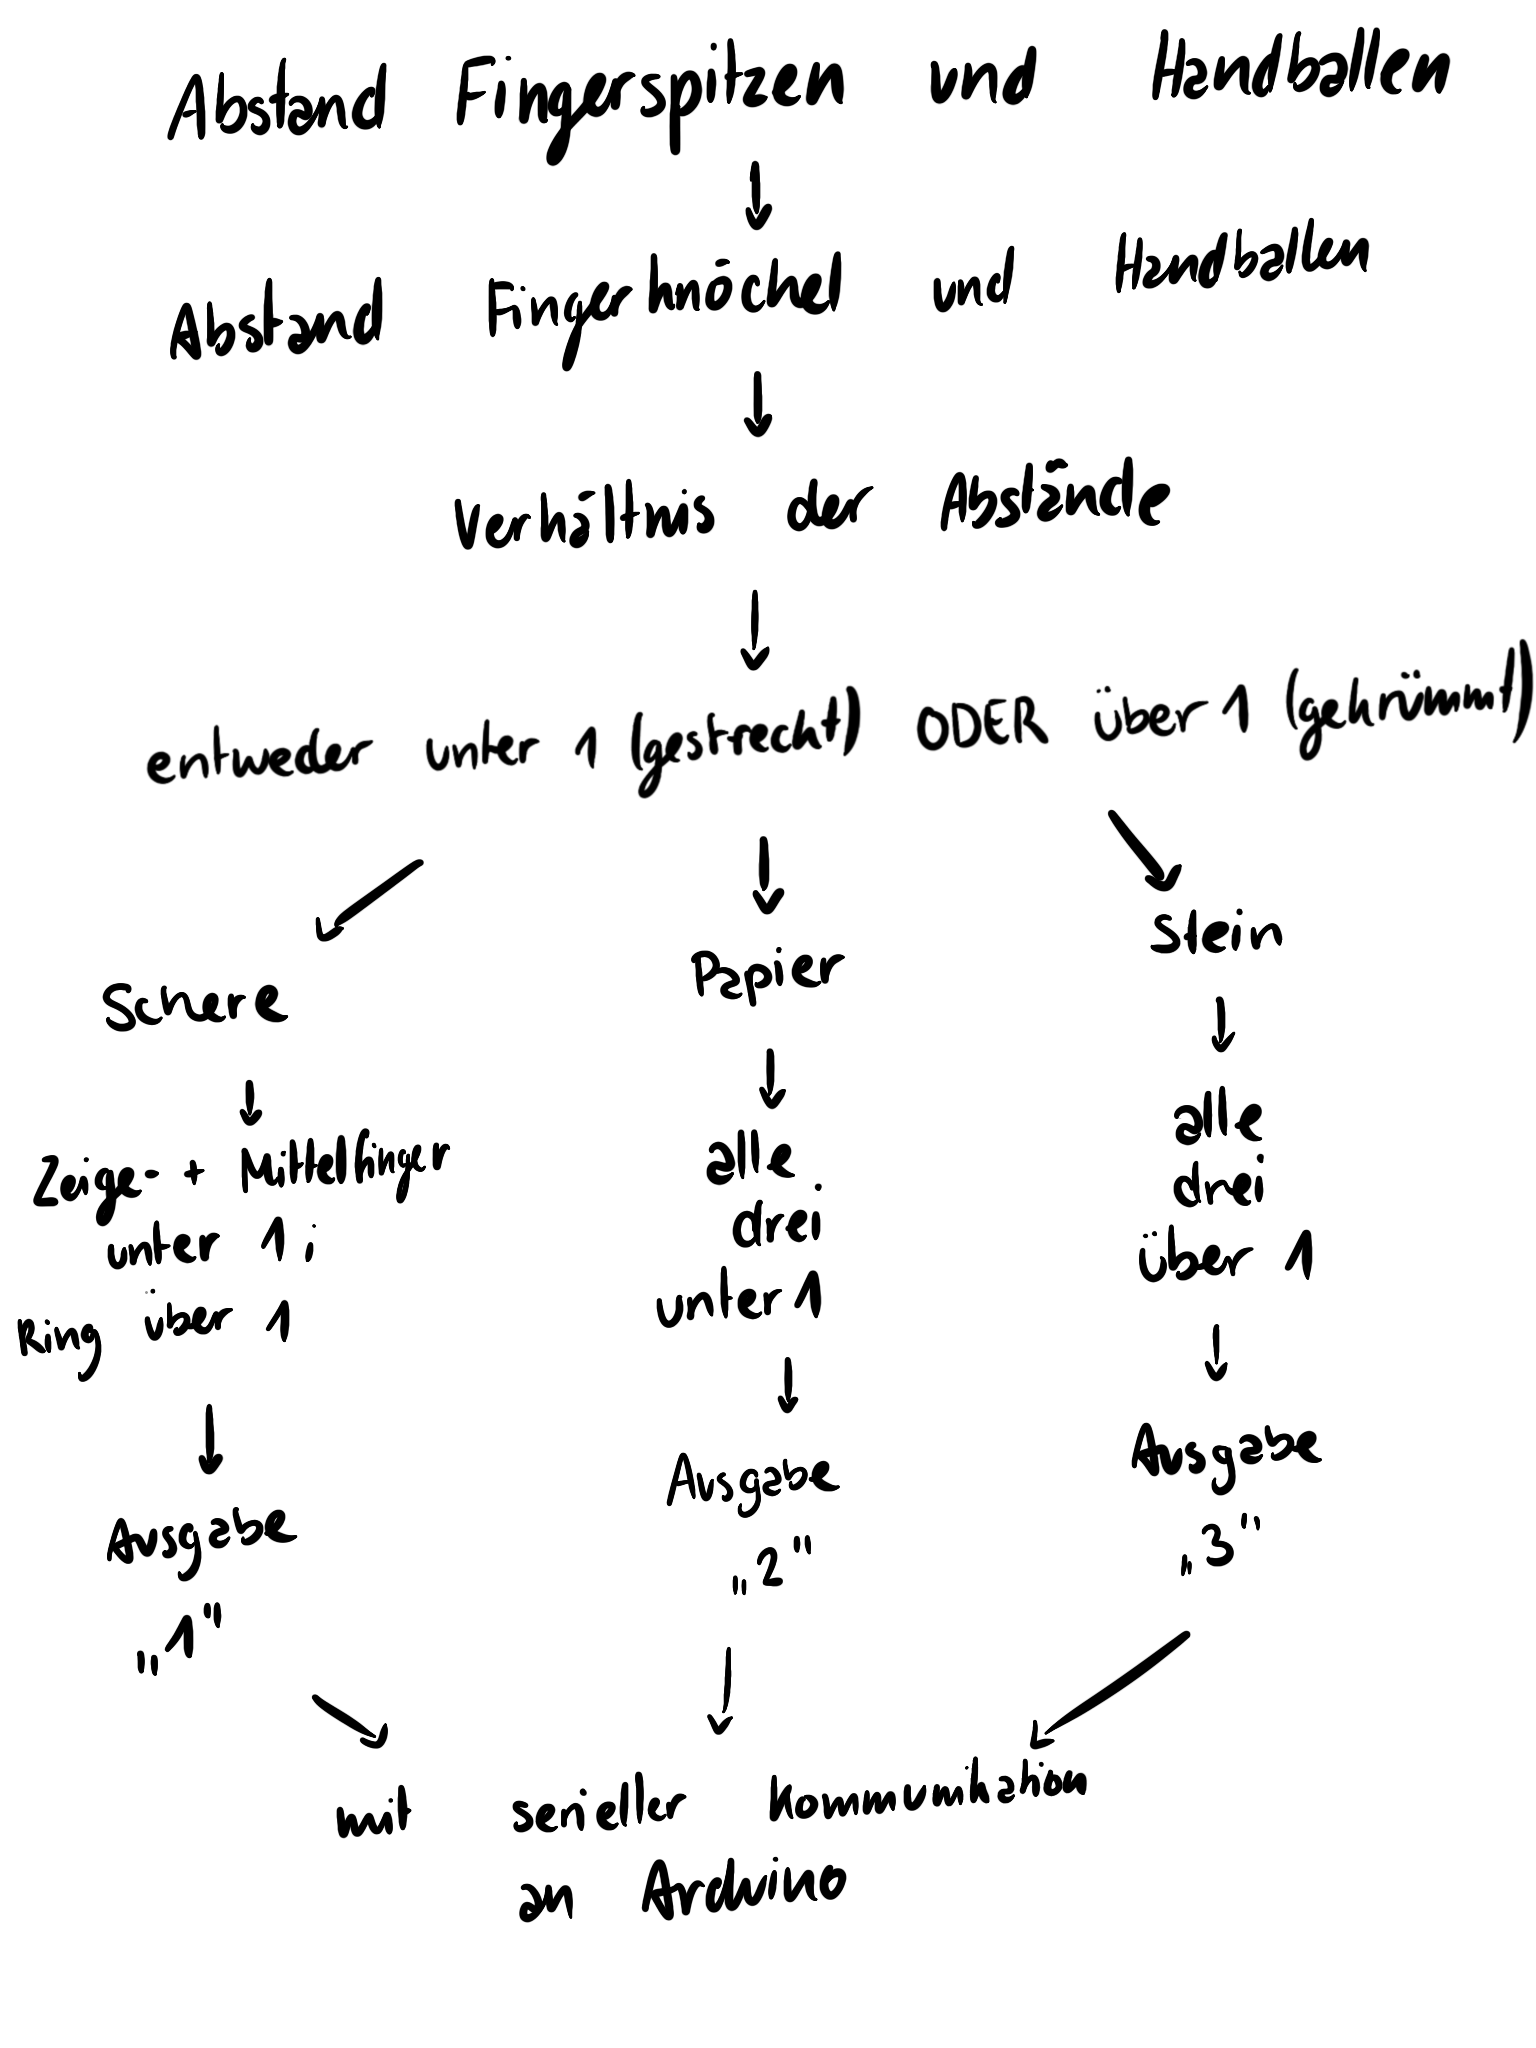 Abstand Fingerspitzen und Handballen
Abstand Fingerknöchel und Handballen
Verhältnis der Abstände
entweder unter 1 (gestreckt) ODER über 1 (gekrümmt)
Schere
Zeige- + Mittelfinger
unter 1;
Ring über 1
Ausgabe
„1"
Papier
alle
drei
unter 1
Ausgabe
„2"
Stein
alle
drei
über 1
Ausgabe
„3"
mit serieller Kommunikation
an Arduino